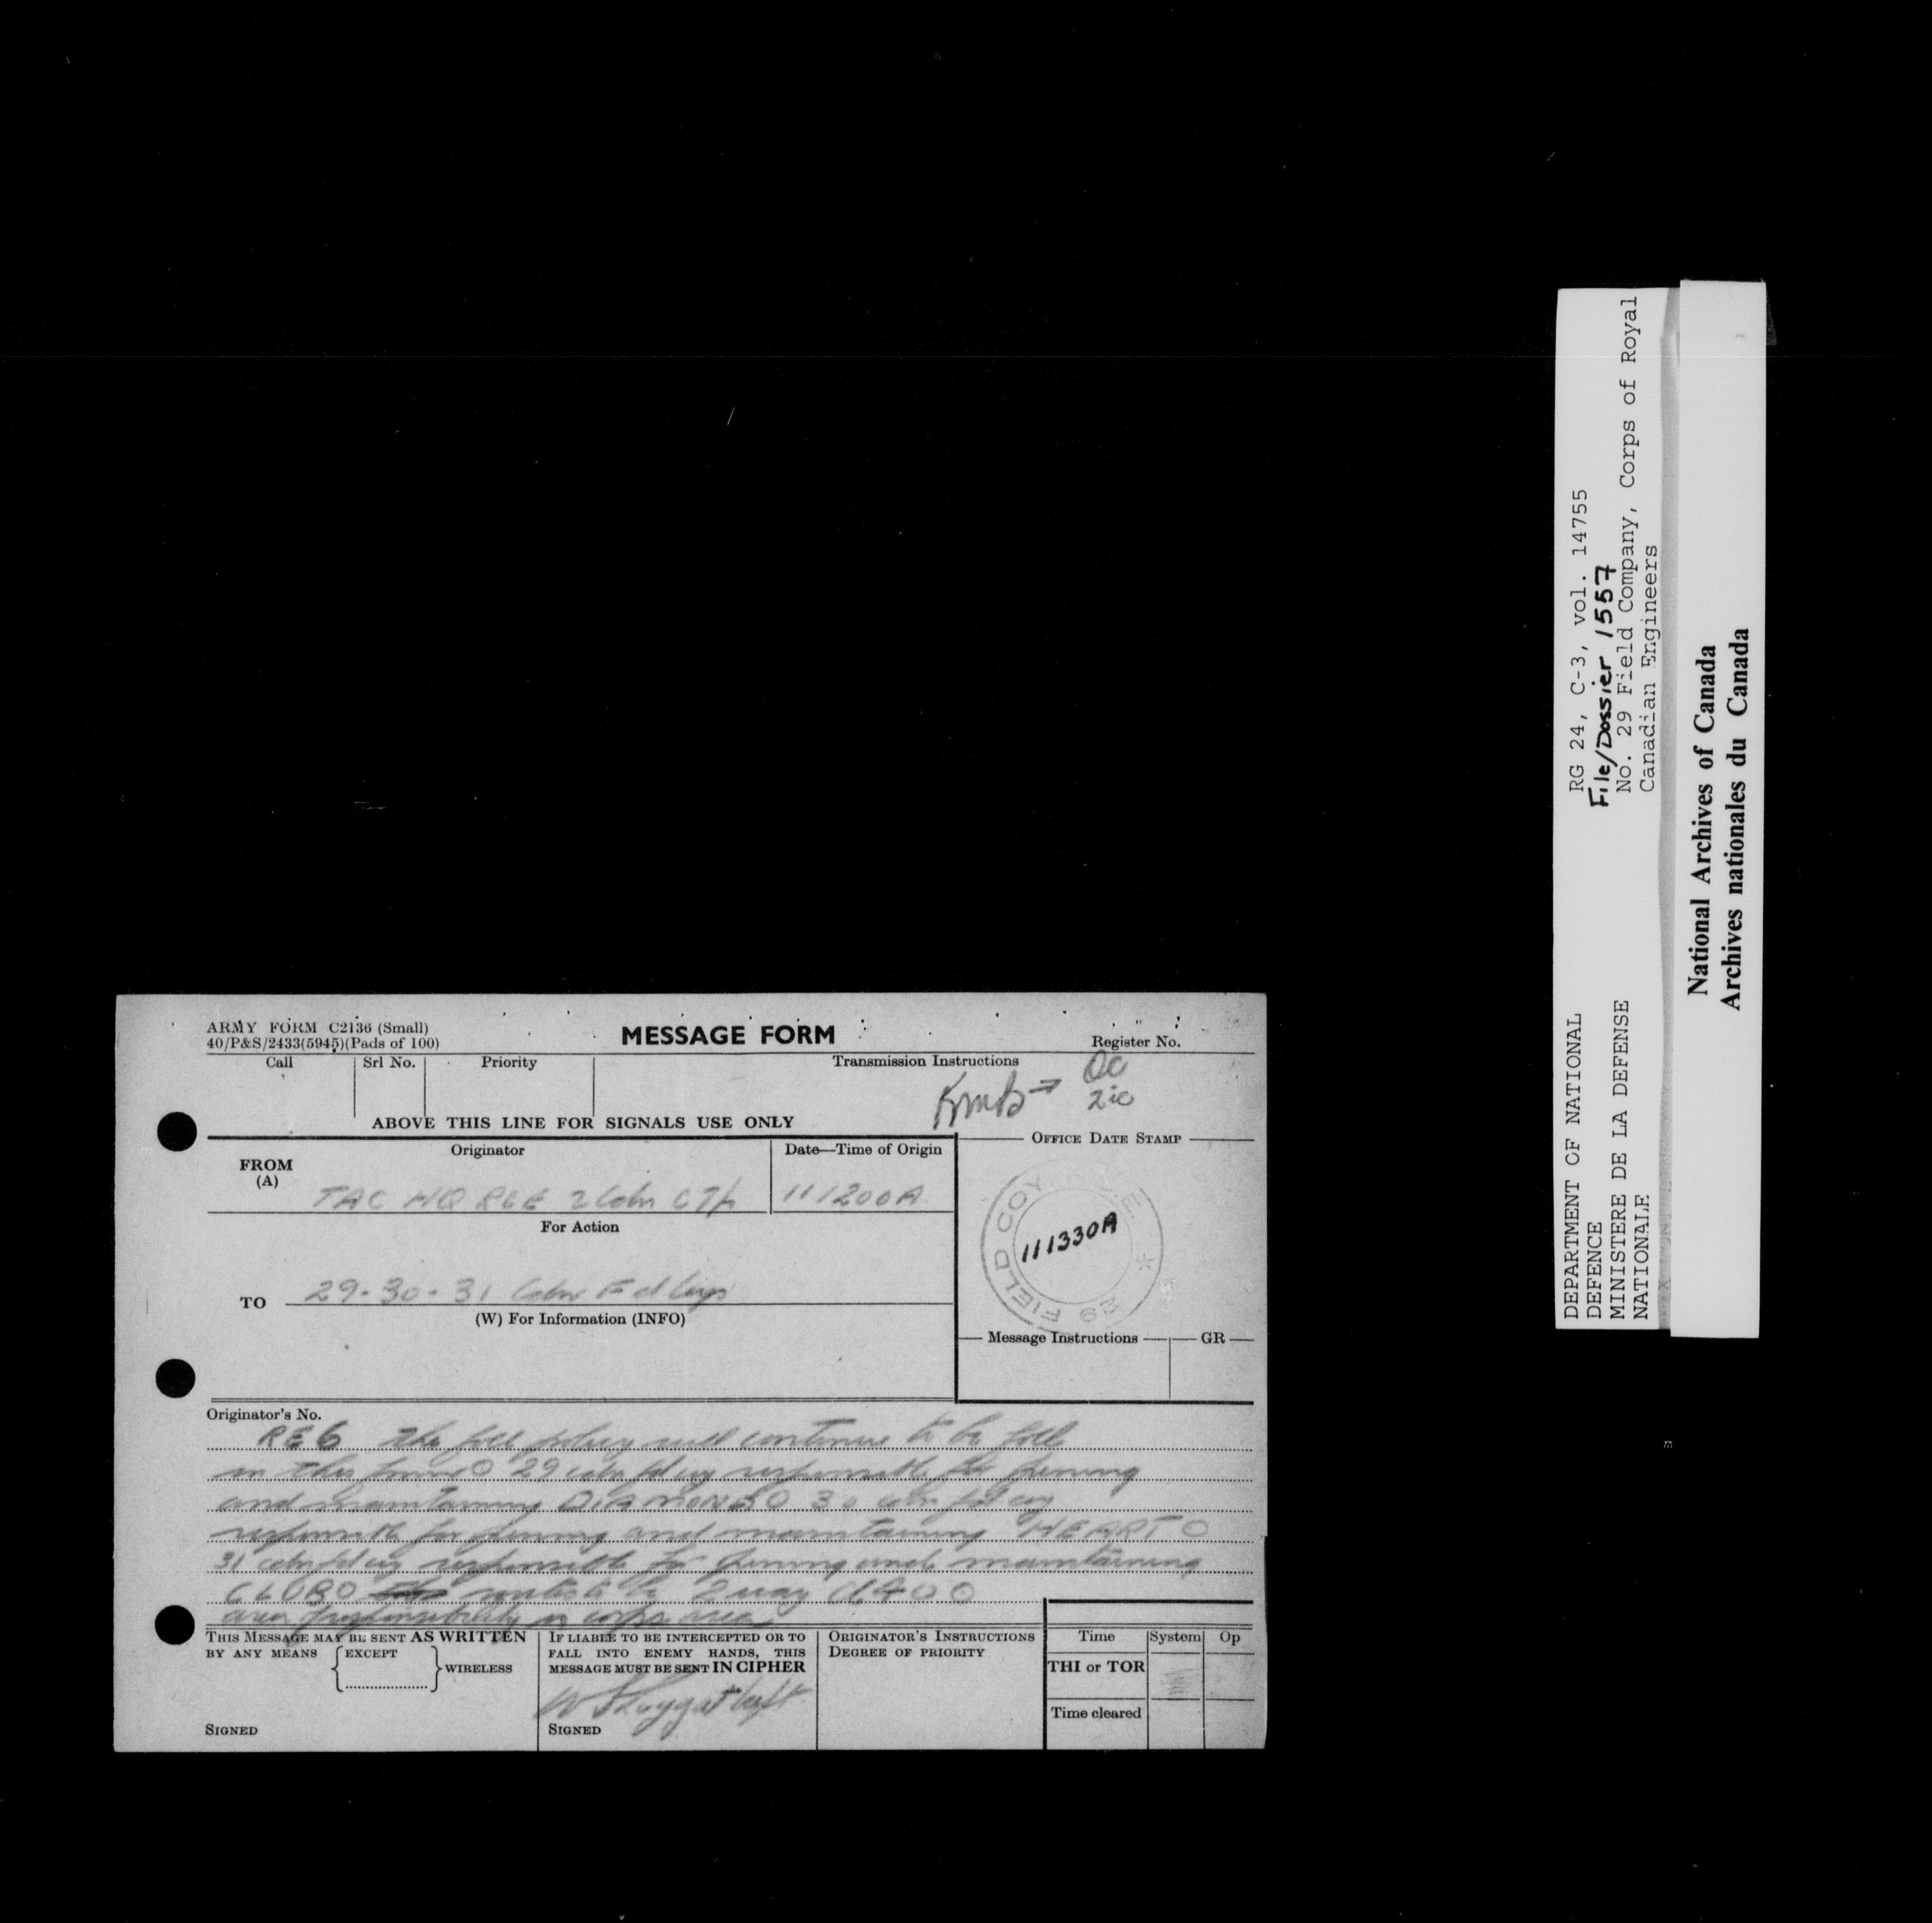 ARMY FORM C2136 (Small)
40/P&S/2433(5945)(Pads of 100)
MESSAGE FORM
Register No.
Call
Srl No.
Priority
Transmission Instructions
OC
2ic
ABOVE THIS LINE FOR SIGNALS USE ONLY
FROM
(A)
Originator
Date—Time of Origin
OFFICE DATE STAMP
TAC HQ RCE 2 Cdn
111200A
29 FIELD COY
111330A
For Action
TO
29-30-31 Cdn Fd Coys
(W) For Information (INFO)
Message Instructions
GR
Originator's No.
RE6 the foll policy will continue to be foll
in this 29 cdn fd coy responsible for
and maintaining DIAMOND O 30 cdn fd coy
responsible for and maintaining HEART O
31 cdn fd coy responsible for and maintaining
CLUB O routes to be 2 way cl 40 O
area of responsibility is corps area
THIS MESSAGE MAY BE SENT AS WRITTEN
BY ANY MEANS
EXCEPT
WIRELESS
SIGNED
IF LIABLE TO BE INTERCEPTED OR TO
FALL INTO ENEMY HANDS, THIS
MESSAGE MUST BE SENT IN CIPHER
SIGNED
ORIGINATOR'S INSTRUCTIONS
DEGREE OF PRIORITY
Time
System
Op
THI or TOR
Time cleared
DEPARTMENT OF NATIONAL
DEFENCE
MINISTERE DE LA DEFENSE
NATIONALE
RG 24, C-3, vol. 14755
File/Dossier 1557
No. 29 Field Company, Corps of Royal
Canadian Engineers
National Archives of Canada
Archives nationales du Canada